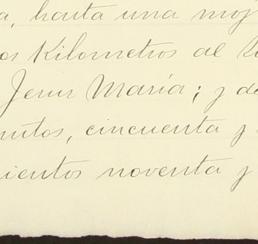 , hasta una moj
os Kilometros al
Jesus María; y de
nutos, cincuenta y
ientos noventa y